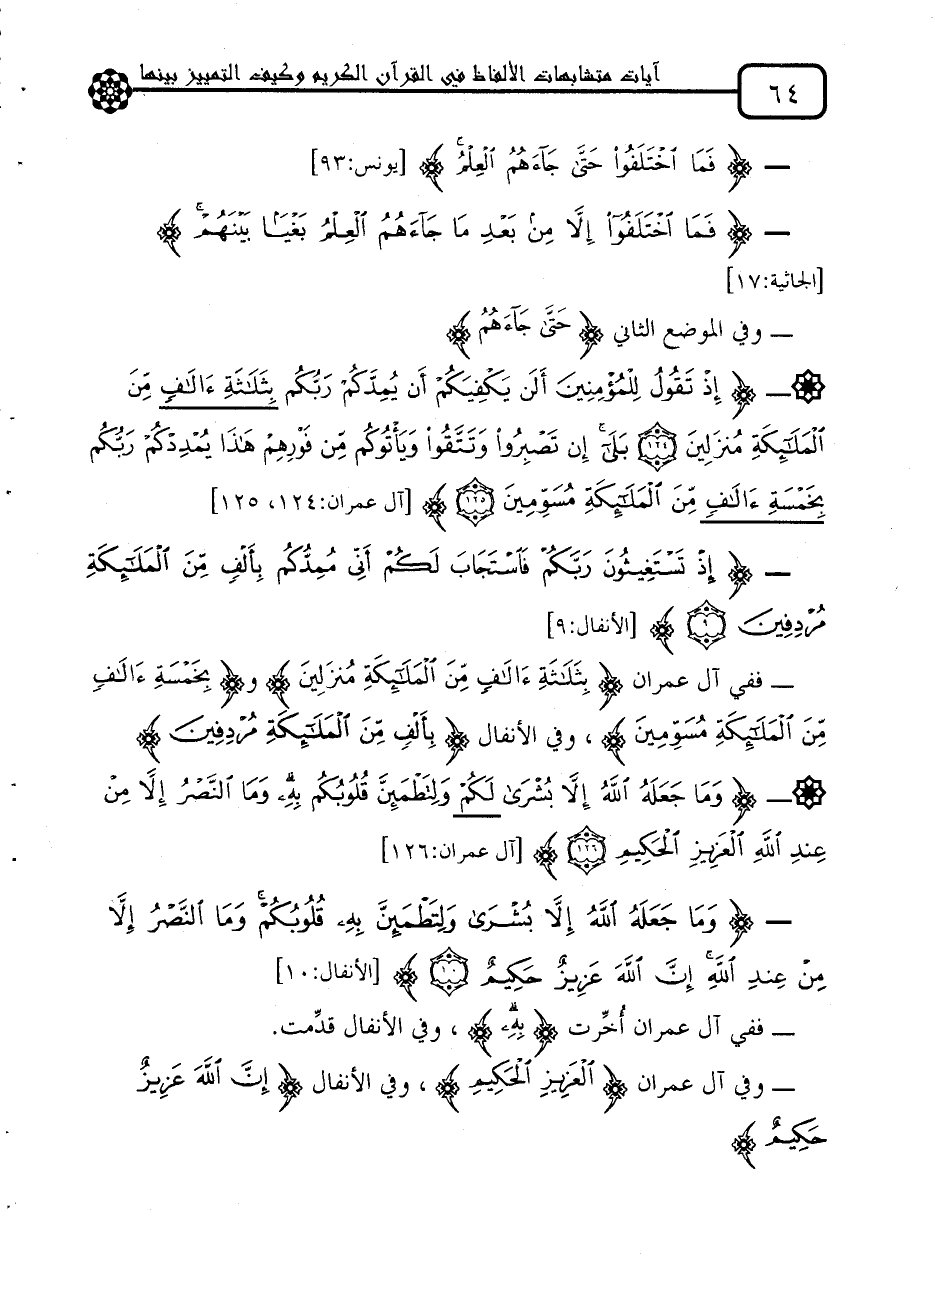 آيات متشابهات الألفاظ في القرآن الكريم وكيف التمييز بينها
٦٤
— ﴿ فَمَا ٱخْتَلَفُوا۟ حَتَّىٰ جَآءَهُمُ ٱلْعِلْمُ ۚ ﴾ [يونس:٩٣]
— ﴿ فَمَا ٱخْتَلَفُوٓا۟ إِلَّا مِنۢ بَعْدِ مَا جَآءَهُمُ ٱلْعِلْمُ بَغْيًۢا بَيْنَهُمْ ۚ ﴾
[الجاثية:١٧]
— وفي الموضع الثاني ﴿ حَتَّىٰ جَآءَهُمُ ﴾
— ﴿ إِذْ تَقُولُ لِلْمُؤْمِنِينَ أَلَن يَكْفِيَكُمْ أَن يُمِدَّكُمْ رَبُّكُم بِثَلَٰثَةِ ءَالَٰفٍ مِّنَ
ٱلْمَلَٰٓئِكَةِ مُنزَلِينَ ١٢٤ بَلَىٰٓ ۚ إِن تَصْبِرُوا۟ وَتَتَّقُوا۟ وَيَأْتُوكُم مِّن فَوْرِهِمْ هَٰذَا يُمْدِدْكُمْ رَبُّكُم
بِخَمْسَةِ ءَالَٰفٍ مِّنَ ٱلْمَلَٰٓئِكَةِ مُسَوِّمِينَ ١٢٥ ﴾ [آل عمران:١٢٤، ١٢٥]
— ﴿ إِذْ تَسْتَغِيثُونَ رَبَّكُمْ فَٱسْتَجَابَ لَكُمْ أَنِّى مُمِدُّكُم بِأَلْفٍ مِّنَ ٱلْمَلَٰٓئِكَةِ
مُرْدِفِينَ ٩ ﴾ [الأنفال:٩]
— ففي آل عمران ﴿ بِثَلَٰثَةِ ءَالَٰفٍ مِّنَ ٱلْمَلَٰٓئِكَةِ مُنزَلِينَ ﴾ و﴿ بِخَمْسَةِ ءَالَٰفٍ
مِّنَ ٱلْمَلَٰٓئِكَةِ مُسَوِّمِينَ ﴾ ، وفي الأنفال ﴿ بِأَلْفٍ مِّنَ ٱلْمَلَٰٓئِكَةِ مُرْدِفِينَ ﴾
— ﴿ وَمَا جَعَلَهُ ٱللَّهُ إِلَّا بُشْرَىٰ لَكُمْ وَلِتَطْمَئِنَّ قُلُوبُكُم بِهِۦ ۗ وَمَا ٱلنَّصْرُ إِلَّا مِنْ
عِندِ ٱللَّهِ ٱلْعَزِيزِ ٱلْحَكِيمِ ١٢٦ ﴾ [آل عمران:١٢٦]
— ﴿ وَمَا جَعَلَهُ ٱللَّهُ إِلَّا بُشْرَىٰ وَلِتَطْمَئِنَّ بِهِۦ قُلُوبُكُمْ ۚ وَمَا ٱلنَّصْرُ إِلَّا
مِنْ عِندِ ٱللَّهِ ۚ إِنَّ ٱللَّهَ عَزِيزٌ حَكِيمٌ ١٠ ﴾ [الأنفال:١٠]
— ففي آل عمران أُخِّرت ﴿ بِهِۦ ۗ ﴾ ، وفي الأنفال قدِّمت.
— وفي آل عمران ﴿ ٱلْعَزِيزِ ٱلْحَكِيمِ ﴾ ، وفي الأنفال ﴿ إِنَّ ٱللَّهَ عَزِيزٌ
حَكِيمٌ ﴾